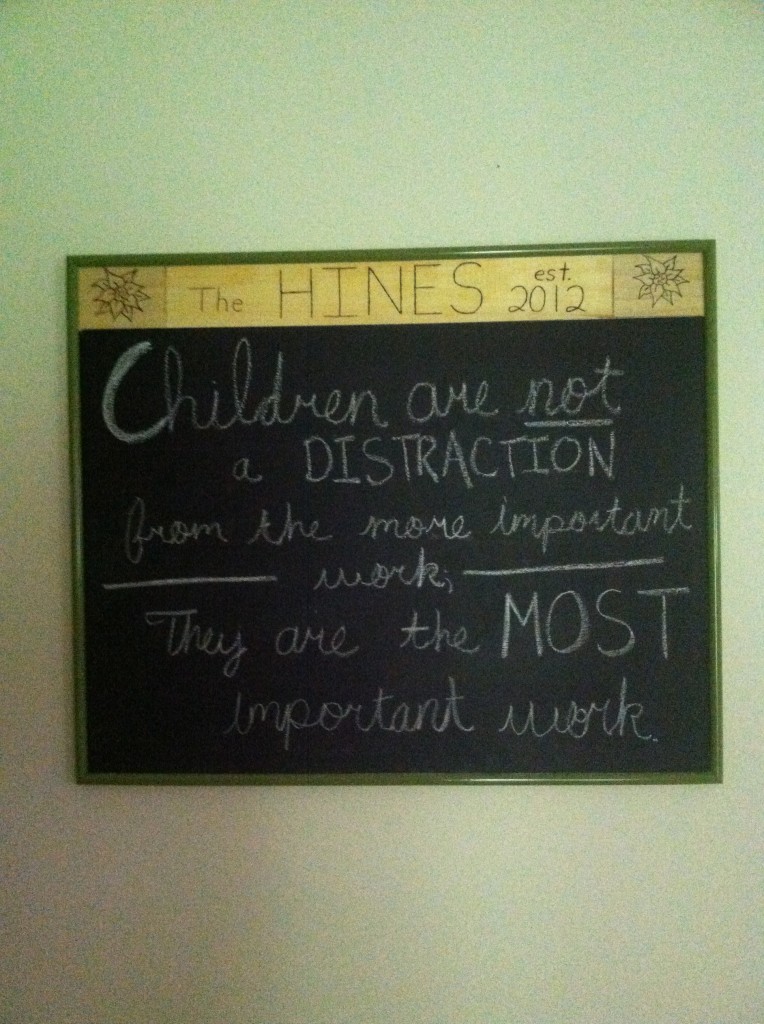 The HINES est. 2012
Children are not
a DISTRACTION
from the more important
work;
They are the MOST
important work.